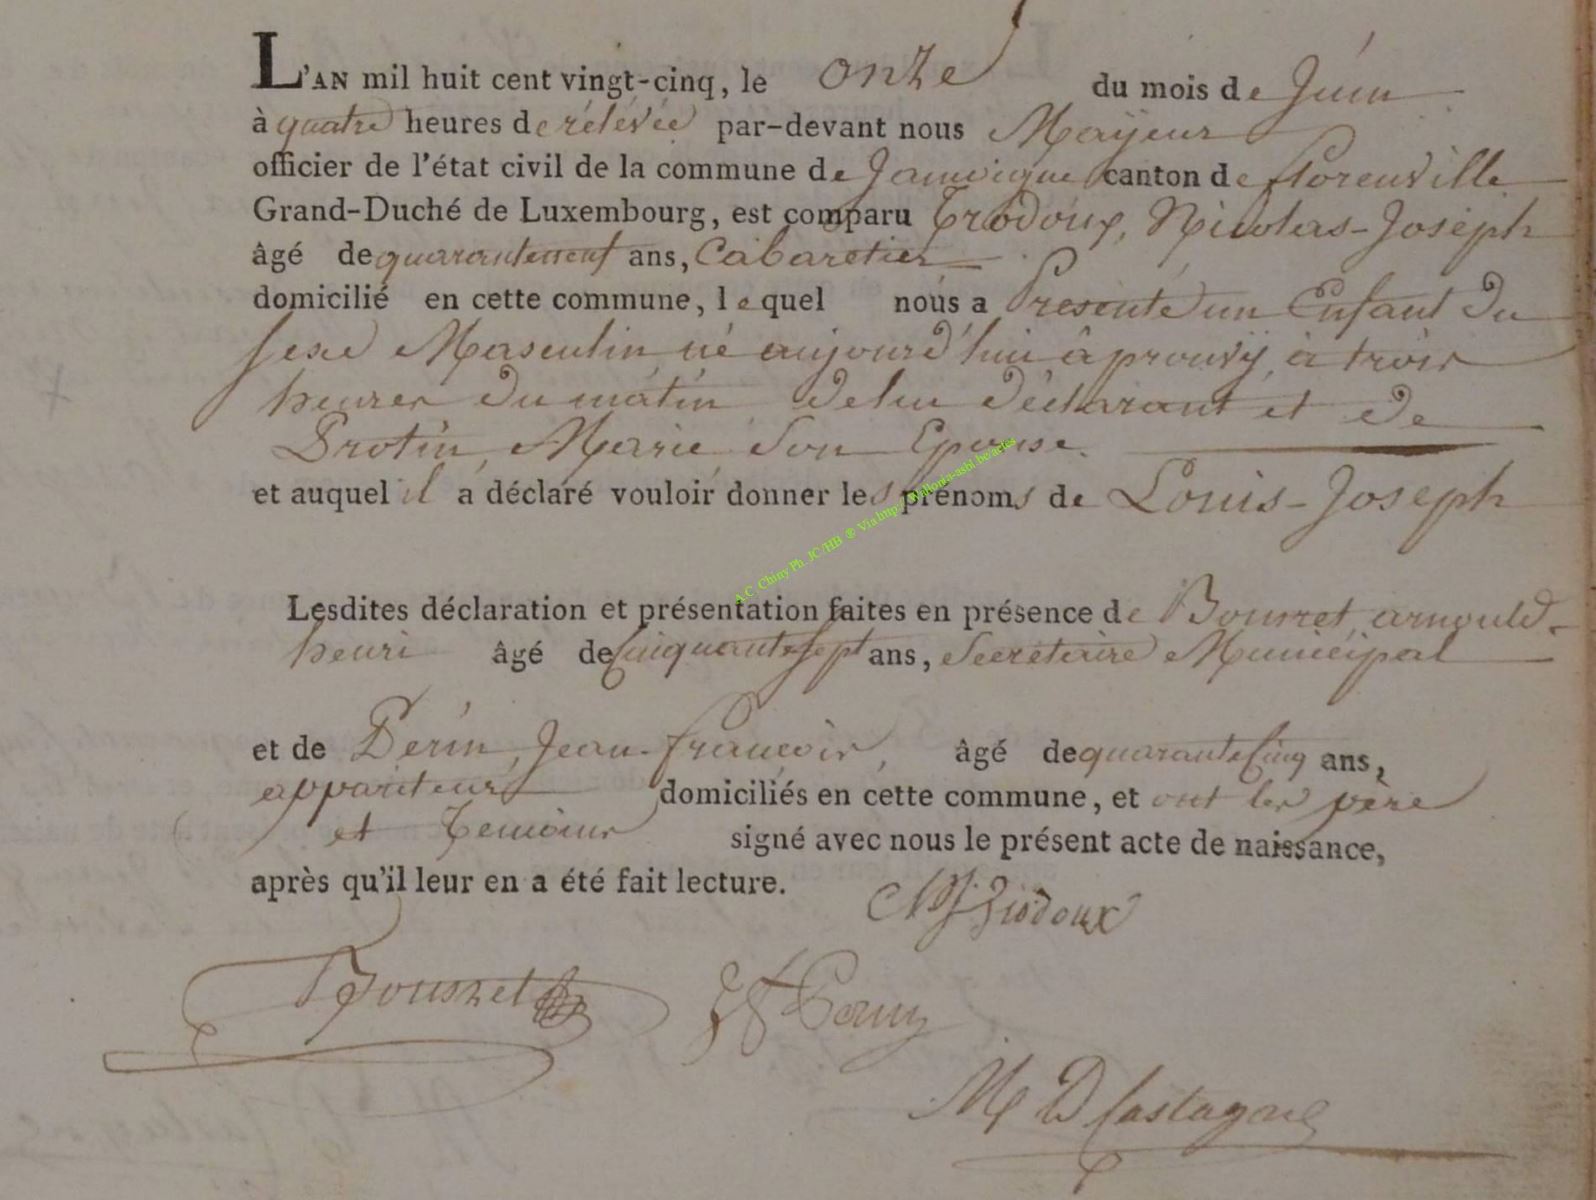 L'AN mil huit cent vingt-cinq, le onze du mois de Juin
à quatre heures de rélévée par-devant nous Mayeur
officier de l'état civil de la commune de Jamoigne canton de florenville
Grand-Duché de Luxembourg, est comparu Triodoux, Nicolas-Joseph
âgé de quaranteneuf ans, Cabaretier
domicilié en cette commune, lequel nous a Presenté un Enfant du
sexe Masculin né aujourd'hui à prouvy, à trois
heures du matin, de lui déclarant et de
Protin, Marie, son Epouse.
et auquel il a déclaré vouloir donner les prénoms de Louis-Joseph
A.C. Chiny Ph. JC/HB ® Via http://Wallonia-asbl.be/actes
Lesdites déclaration et présentation faites en présence de Bournet, arnould-
henri âgé de cinquante sept ans, Secretaire Municipal
et de Perin, Jean-françois, âgé de quarante cinq ans,
appariteur domiciliés en cette commune, et ont les père
et Temoins signé avec nous le présent acte de naissance,
après qu'il leur en a été fait lecture.
NJ Triodoux
Bournet
M D Castagne